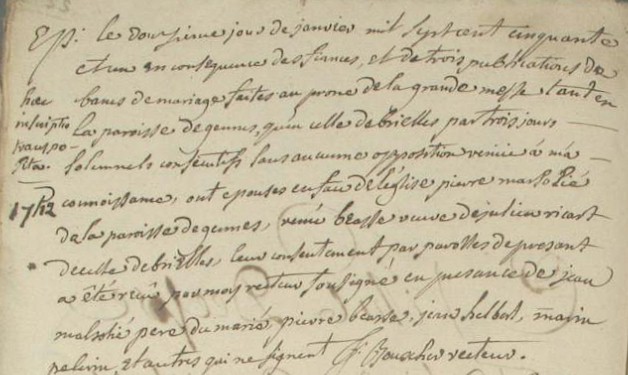 Ep: le douzieme jour de janvier mil sept cent cinquante
et un en consequence des fiances, et de trois publications de
haec
bancs de mariage faites au prone de la grande messe tant en
inscriptio
la paroisse de gennes, qu'en celle de brielles par trois jours
transpo-
sita.
solennels consecutifs sans aucune opposition venuë à ma
connoissance, ont epousés en face de l'église pierre
de la paroisse de gennes, renée beasse veuve de julien ricart
de celle de brielles, leur consentement par parolles de present
a été reçû par moy recteur soussigné en presance de jean
pere du marié, pierre beasse, jean helbert, marin
pelerin, et autres qui ne signent recteur.